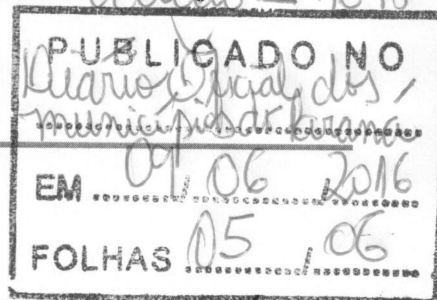 PUBLICADO NO
Diário Oficial dos
municípios do Paraná
EM 09/06/2016
FOLHAS 05/06